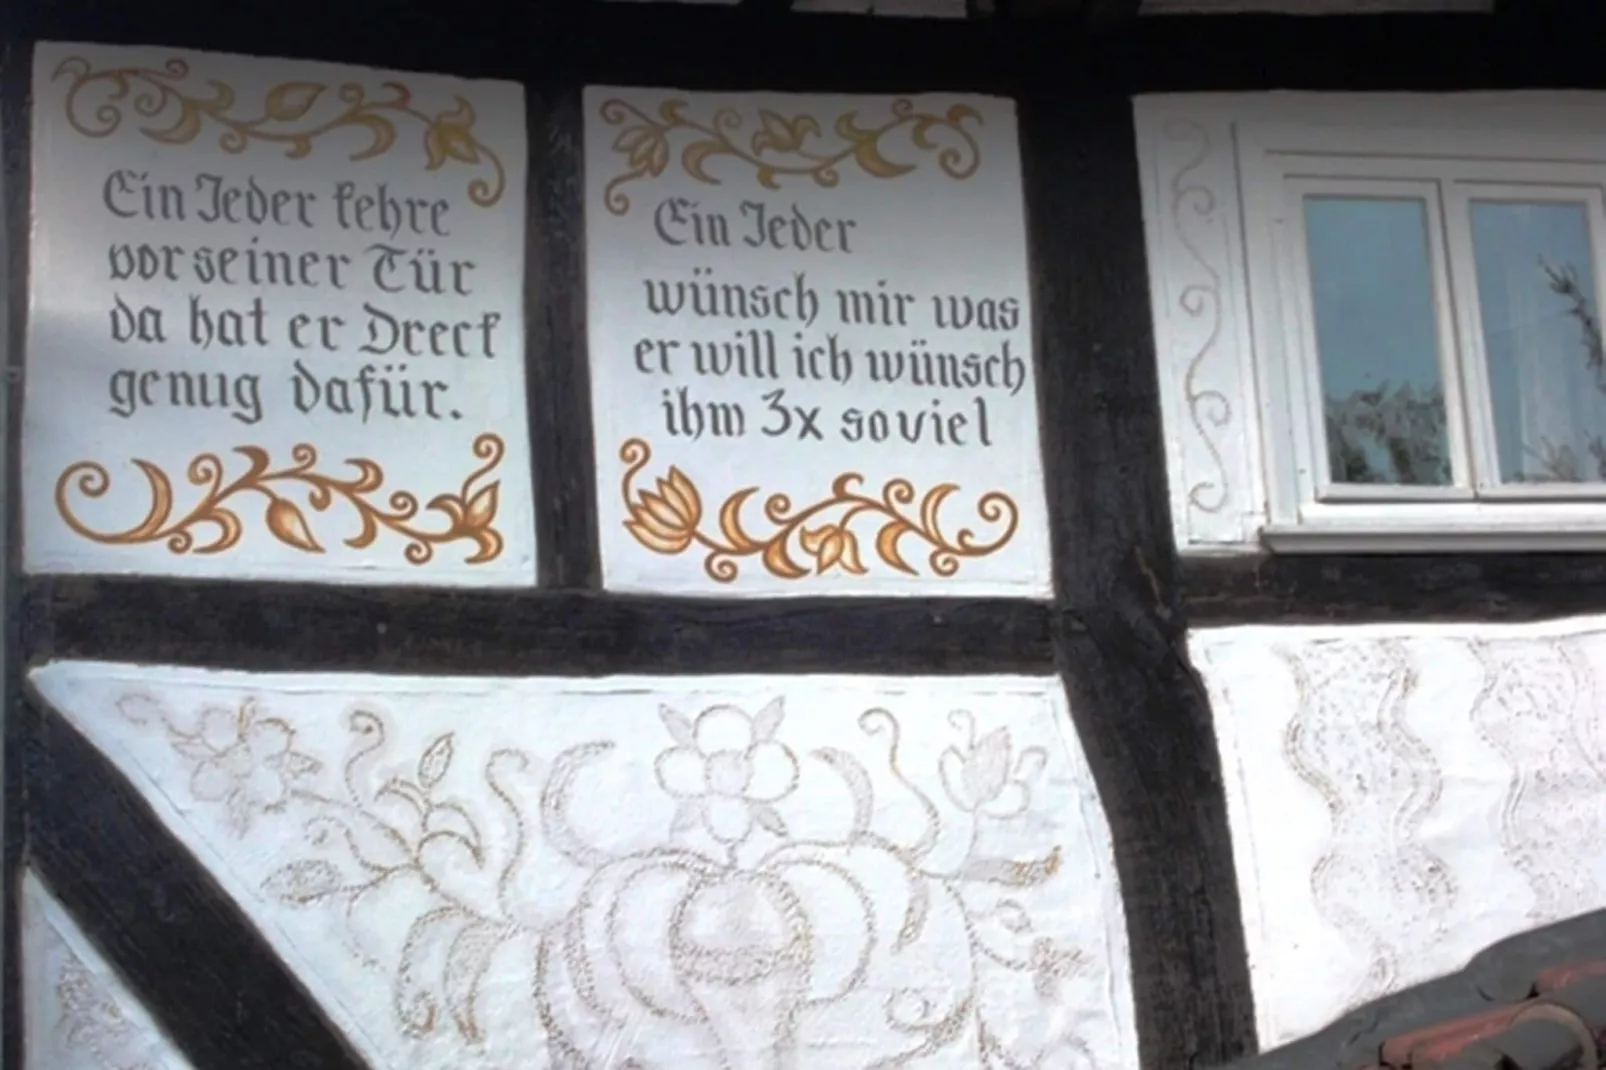 Ein Jeder kehre
vor seiner Tür
da hat er Dreck
genug dafür.
Ein Jeder
wünsch mir was
er will ich wünsch
ihm 3x soviel